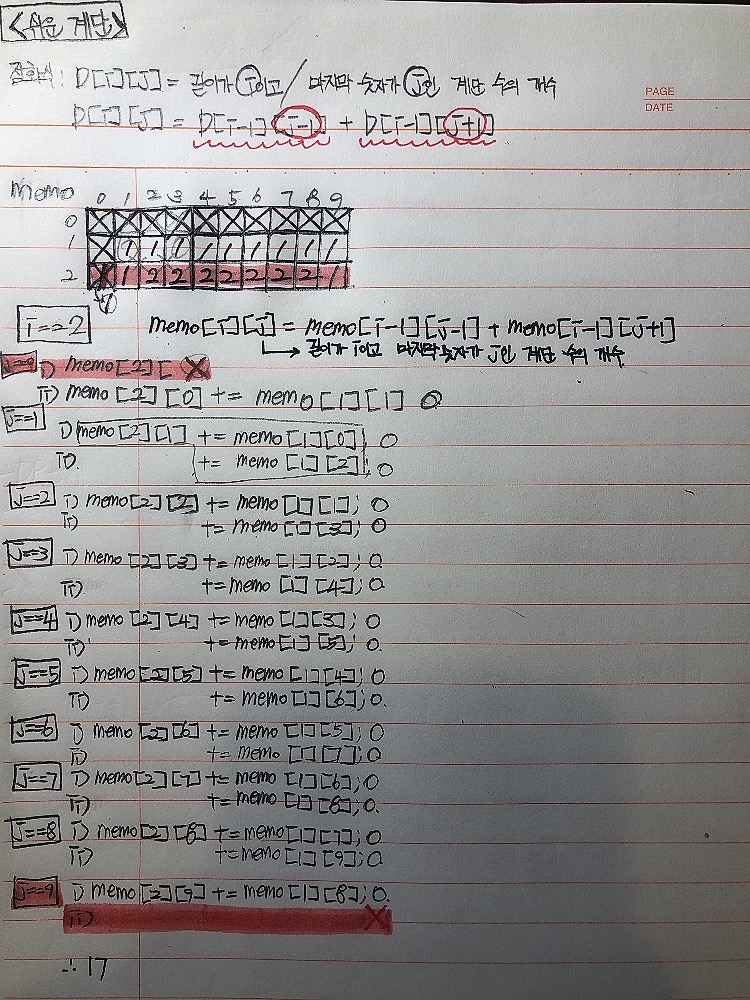 <쉬운 계단>
점화식: D[i][j] = 길이가 i이고 / 마지막 숫자가 j인 계단 수의 개수
PAGE
DATE
D[i][j] = D[i-1][j-1] + D[i-1][j+1]
memo 0 1 2 3 4 5 6 7 8 9
0 X X X X X X X X X X
1 X 1 1 1 1 1 1 1 1 1
2 X 1 2 2 2 2 2 2 2 1
i==2 memo[i][j] = memo[i-1][j-1] + memo[i-1][j+1]
→ 길이가 i이고 마지막 숫자가 j인 계단 수의 개수
j==0 i) memo[2][ X
ii) memo[2][0] += memo[1][1] O
j==1 i) memo[2][1] += memo[1][0] O
ii) += memo[1][2]; O
j==2 i) memo[2][2] += memo[1][1]; O
ii) += memo[1][3]; O
j==3 i) memo[2][3] += memo[1][2]; O
ii) += memo[1][4]; O
j==4 i) memo[2][4] += memo[1][3]; O
ii) += memo[1][5]; O
j==5 i) memo[2][5] += memo[1][4]; O
ii) += memo[1][6]; O.
j==6 i) memo[2][6] += memo[1][5]; O
ii) += memo[1][7]; O
j==7 i) memo[2][7] += memo[1][6]; O
ii) += memo[1][8]; O.
j==8 i) memo[2][8] += memo[1][7]; O
ii) += memo[1][9]; O.
j==9 i) memo[2][9] += memo[1][8]; O.
ii) X
∴ 17